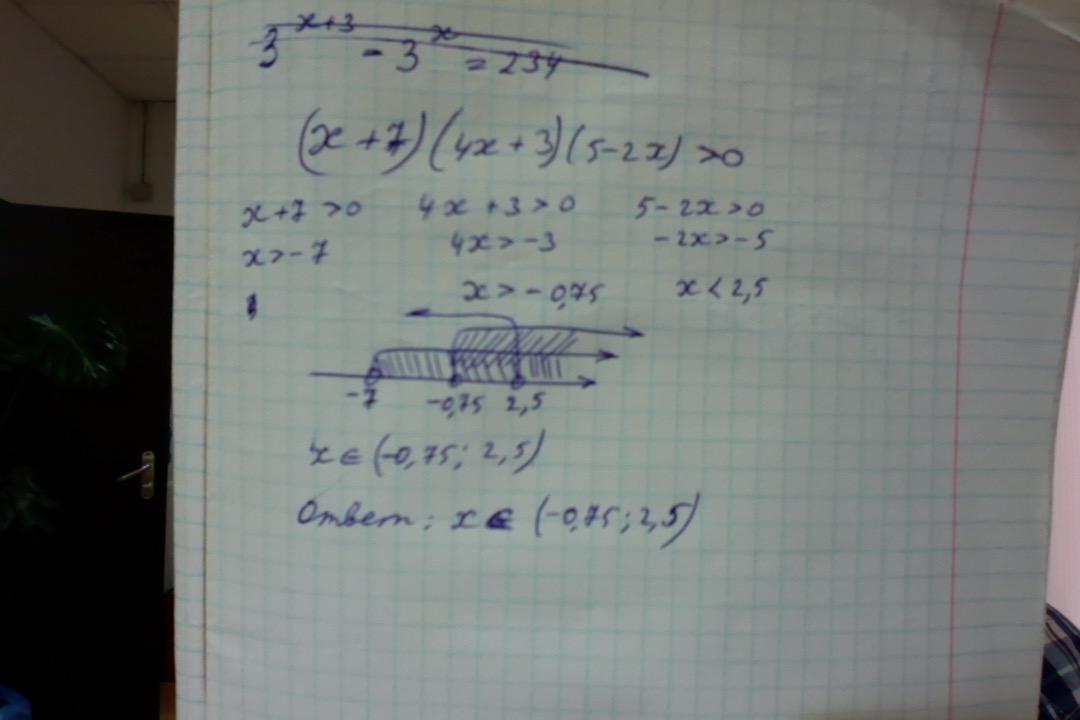 3^(x+3) - 3^x = 234
(x+7)(4x+3)(5-2x)>0
x+7>0 4x+3>0 5-2x>0
x>-7 4x>-3 -2x>-5
x>-0,75 x<2,5
-7 -0,75 2,5
x∈(-0,75; 2,5)
Ответ: x∈(-0,75; 2,5)